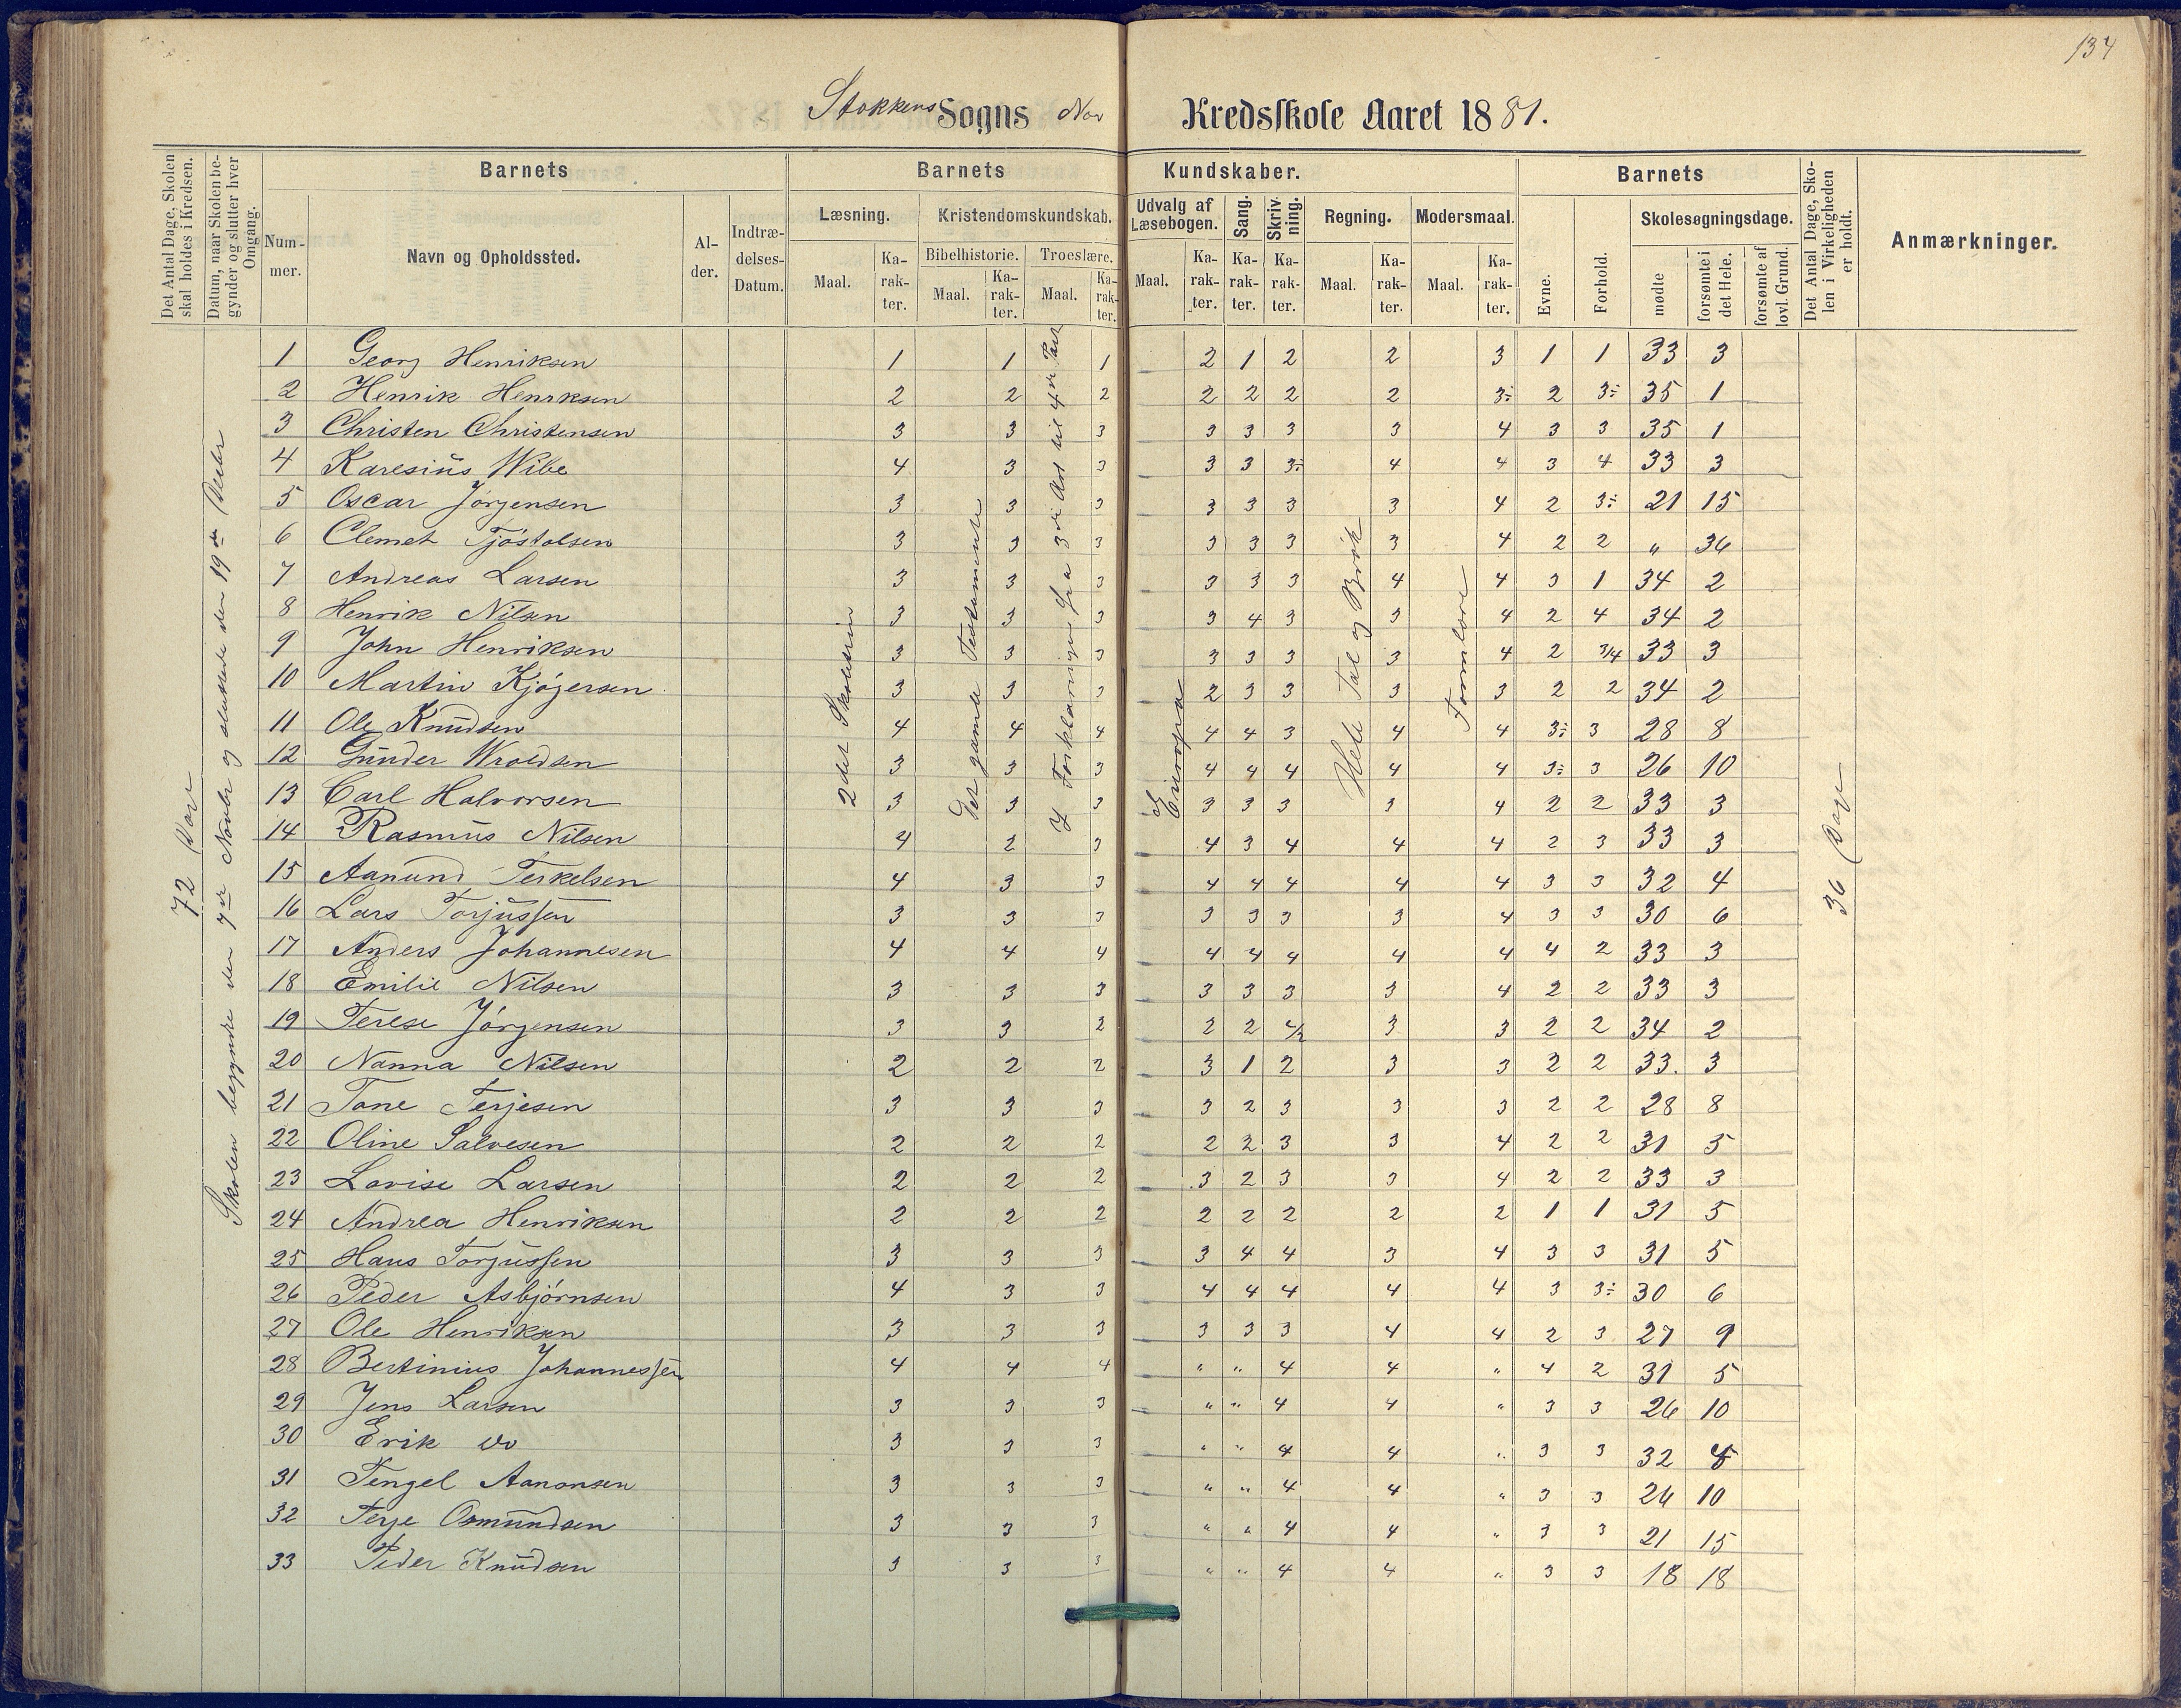 134
Stokkens Sogns Nor Kredsskole Aaret 1881.
Det Antal Dage, Skolen skal holdes i Kredsen.
Datum, naar Skolen begynder og slutter hver Omgang.
Barnets
Nummer.
Navn og Opholdssted.
Alder.
Indtrædelses-Datum.
Barnets Kundskaber.
Læsning.
Maal.
Karakter.
Kristendomskundskab.
Bibelhistorie.
Maal.
Karakter.
Troeslære.
Maal.
Karakter.
Udvalg af Læsebogen.
Maal.
Karakter.
Sang.
Karakter.
Skrivning.
Karakter.
Regning.
Maal.
Karakter.
Modersmaal.
Maal.
Karakter.
Barnets
Evne.
Forhold.
Skolesøgningsdage.
mødte
forsømte i det Hele.
forsømte af lovl. Grund.
Det Antal Dage, Skolen i Virkeligheden er holdt.
Anmærkninger.
72 Dage
Skolen begyndte den 7de Novbr og sluttede den 19de Decbr
2det Skoletrin
Det gamle Testamente
Forklaringen fra 3die Art til 4de Part
Europa
Hele Tal og Brøk
Formlære
36 Dage
1 Georg Henriksen 1 1 1 2 1 2 2 3 1 1 33 3
2 Henrik Henrksen 2 2 2 2 2 2 2 3÷ 2 3÷ 35 1
3 Christen Christensen 3 3 3 3 3 3 3 4 3 3 35 1
4 Karesius Wibe 4 3 3 3 3 3÷ 4 4 3 4 33 3
5 Oscar Jørgensen 3 3 3 3 3 3 3 4 2 3÷ 21 15
6 Clemet Tjøstolsen 3 3 3 3 3 3 3 4 2 2 " 36
7 Andreas Larsen 3 3 3 3 3 3 4 4 3 1 34 2
8 Henrik Nilsen 3 3 3 3 4 3 3 4 2 4 34 2
9 John Henriksen 3 3 3 3 3 3 3 4 2 3/4 33 3
10 Martin Kjøgersen 3 3 3 2 3 3 3 3 2 2 34 2
11 Ole Knudsen 4 4 4 4 4 3 4 4 3÷ 3 28 8
12 Gunder Wroldsen 3 3 3 4 4 4 4 4 3÷ 3 26 10
13 Carl Halvorsen 3 3 3 3 3 3 3 4 2 2 33 3
14 Rasmus Nilsen 4 2 3 4 3 4 4 4 2 3 33 3
15 Aanund Terkelsen 4 3 3 4 4 4 4 4 3 3 32 4
16 Lars Torjussen 3 3 3 3 3 3 3 4 3 3 30 6
17 Anders Johannesen 4 4 4 4 4 4 4 4 4 2 33 3
18 Emilie Nilsen 3 3 3 3 3 3 3 4 2 2 33 3
19 Terese Jørgensen 3 3 2 2 2 2/3 3 3 2 2 34 2
20 Nanna Nilsen 2 2 2 3 1 2 3 3 2 2 33. 3
21 Tone Terjesen 3 3 3 3 2 3 3 3 2 2 28 8
22 Oline Salvesen 2 2 2 2 2 3 3 4 2 2 31 5
23 Lovise Larsen 2 2 2 3 2 3 3 4 2 2 33 3
24 Andrea Henriksen 2 2 2 2 2 2 2 2 1 1 31 5
25 Hans Torjussen 3 3 3 3 4 4 3 4 3 3 31 5
26 Peder Asbjørnsen 4 3 3 4 4 4 4 4 3 3÷ 30 6
27 Ole Henriksen 3 3 3 3 3 3 4 4 2 3 27 9
28 Bertinius Johannessen 4 4 4 " " 4 4 " 4 2 31 5
29 Jens Larsen 3 3 3 " " 4 4 " 3 3 26 10
30 Erik do 3 3 3 " " 4 4 " 3 3 32 4
31 Tengel Aanonsen 3 3 3 " " 4 4 " 3 3 26 10
32 Terje Osmundsen 3 3 3 " " 4 4 " 3 3 21 15
33 Peder Knudsen 3 3 3 " " 4 4 " 3 3 18 18